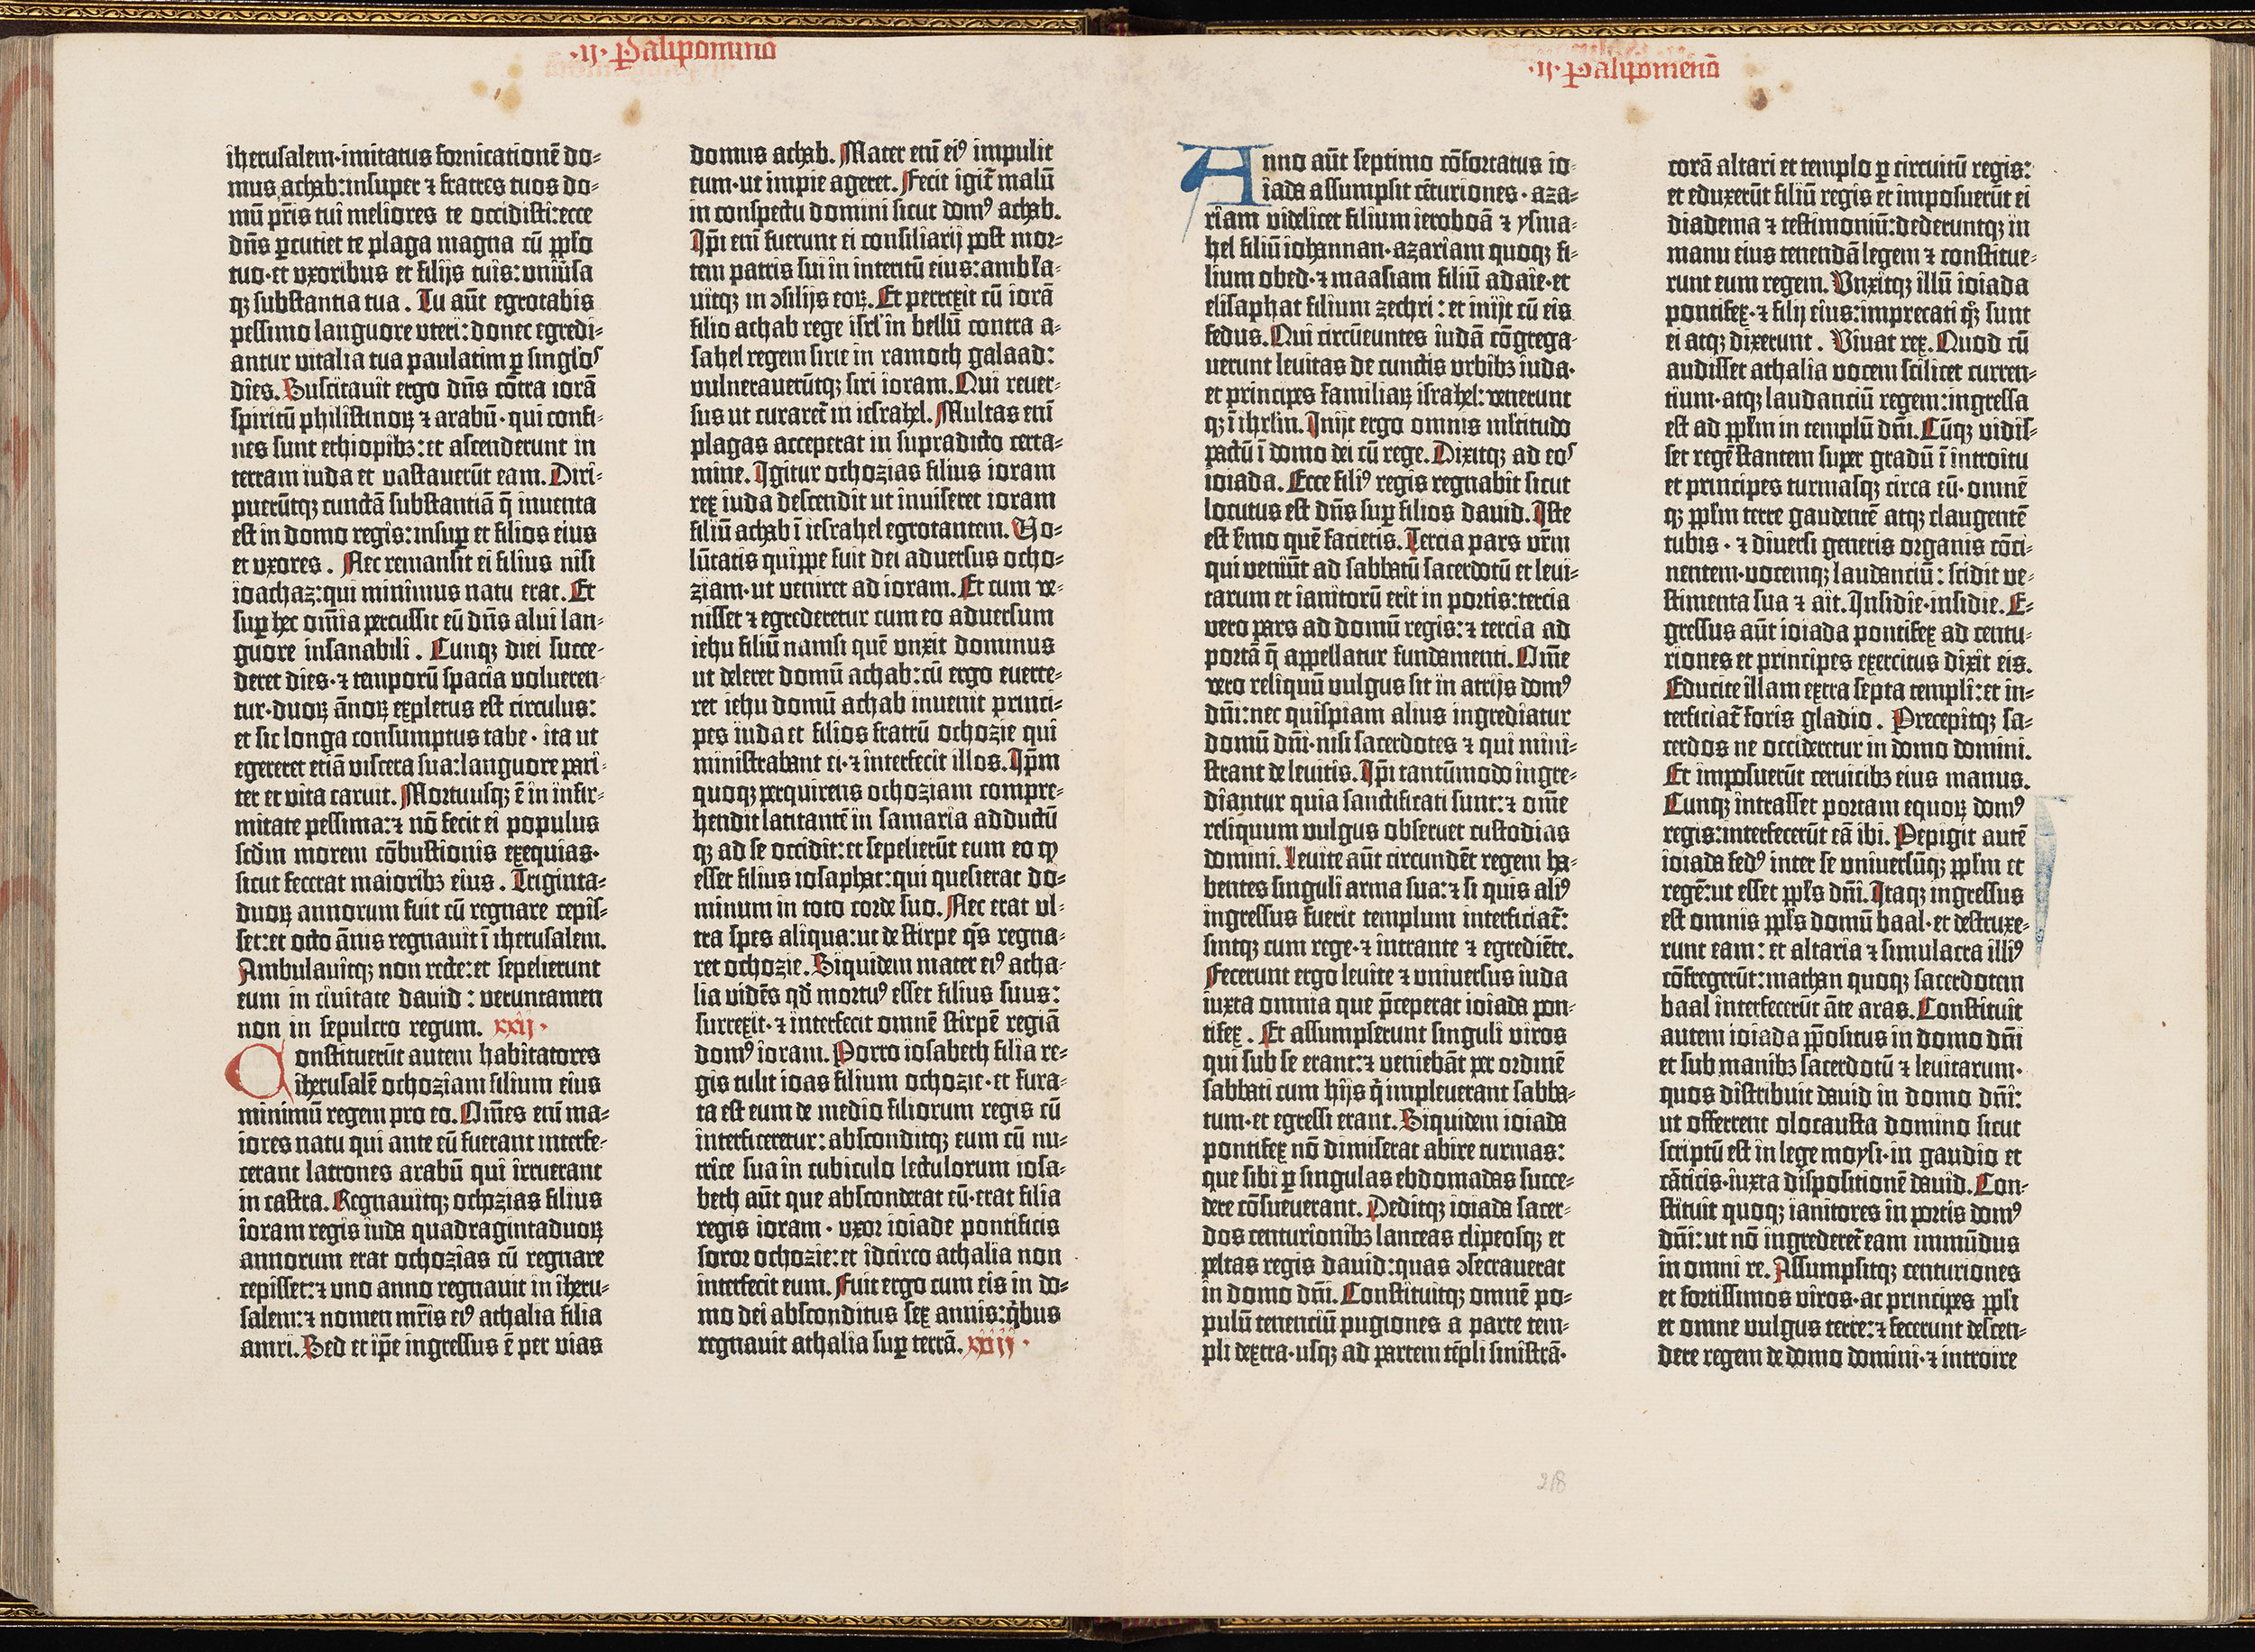 ·ij· Paͥlipominō
iherusalem·imitatus fornicationē do⸗
mus achab:insuper ⁊ fratres tuos do⸗
mū p̄ris tui meliores te occidisti:ecce
dn̄s ꝑcutiet te plaga magna cū pp̄lo
tuo·et uxoribus et filijs tuis:uniu̾sa
qꝫ substantia tua. Tu aūt egrotabis
pessimo languore uteri: donec egredi⸗
antur vitalia tua paulatim ꝑ singl'os
dies. Suscitauit ergo dn̄s cōtra iorā
spiritū philistinoꝝ ⁊ arabū·qui confi⸗
nes sunt ethiopibꝫ:et ascenderunt in
terram iuda et vastauerūt eam. Diri⸗
puerūtqꝫ cunctā substantiā q̄ inuenta
est in domo regis: insuꝑ et filios eius
et uxores. Nec remansit ei filius nisi
ioachaz:qui minimus natu erat. Et
suꝑ hec om̄ia percussit eū dn̄s alui lan⸗
guore insanabili. Cunqꝫ diei succe⸗
deret dies·⁊ temporū spacia volueren⸗
tur·duoꝝ ānoꝝ expletus est circulus:
et sic longa consumptus tabe· ita ut
egereret etiā viscera sua:languore pari⸗
ter et vita caruit. Mortuusqꝫ ē in infir⸗
mitate pessima:⁊ nō fecit ei populus
scd̄m morem cōbustionis exequias·
sicut fecerat maioribꝫ eius. Triginta⸗
duoꝝ annorum fuit cū regnare cepis⸗
set:et octo ānis regnauit ī iherusalem.
Ambulauitqꝫ non recte:et sepelierunt
eum in ciuitate dauid: veruntamen
non in sepulcro regum. xxij·
Constituerūt autem habitatores
iherusalē ochoziam filium eius
minimū regem pro eo. Om̄es enī ma⸗
iores natu qui ante eū fuerant interfe⸗
cerant latrones arabū qui irruerant
in castra. Regnauitqꝫ ochozias filius
ioram regis iuda quadragintaduoꝝ
annorum erat ochozias cū regnare
cepisset:⁊ uno anno regnauit in iheru⸗
salem:⁊ nomen mr̄is eiꝰ athalia filia
amri. Sed et ip̄e ingressus ē per vias
domus achab. Mater enī eiꝰ impulit
eum·ut impie ageret. Fecit igit̄ malū
in conspectu domini sicut domꝰ achab.
Ip̄i enī fuerunt ei consiliarij post mor⸗
tem patris sui in interitū eius: amb'la⸗
uitqꝫ in ↄsilijs eoꝝ. Et perrexit cū iorā
filio achab rege isrl' in bellū contra a⸗
sahel regem sirie in ramoth galaad:
vulnerauerūtqꝫ siri ioram. Qui reuer⸗
sus ut curaret̄ in iesrahel. Multas enī
plagas acceperat in supradicto certa⸗
mine. Igitur ochozias filius ioram
rex iuda descendit ut inuiseret ioram
filiū achab ī iesrahel egrotantem. Uo⸗
lūtatis quippe fuit dei aduersus ocho⸗
ziam·ut veniret ad ioram. Et cum ve⸗
nisset ⁊ egrederetur cum eo aduersum
iehu filiū namsi quē unxit dominus
ut deleret domū achab:cū ergo euerte⸗
ret iehu domū achab inuenit princi⸗
pes iuda et filios fratrū ochozie qui
ministrabant ei·⁊ interfecit illos. Ip̄m
quoqꝫ perquirens ochoziam compre⸗
hendit latitantē in samaria adductū
qꝫ ad se occidit:et sepelierūt eum eo ꝙ
esset filius iosaphat:qui quesierat do⸗
minum in toto corde suo. Nec erat ul⸗
tra spes aliqua:ut de stirpe q̄s regna⸗
ret ochozie. Siquidem mater eiꝰ atha⸗
lia videns qđ mortuꝰ esset filius suus:
surrexit·⁊ interfecit omnē stirpē regiā
domꝰ ioram. Porro iosabeth filia re⸗
gis tulit ioas filium ochozie·et fura⸗
ta est eum de medio filiorum regis cū
interficeretur: absconditqꝫ eum cū nu⸗
trice sua in cubiculo lectulorum iosa⸗
beth aūt que absconderat eū·erat filia
regis ioram· uxor ioiade pontificis
soror ochozie:et idcirco athalia non
interfecit eum. Fuit ergo cum eis in do⸗
mo dei absconditus sex annis:q̇bus
regnauit athalia suꝑ terrā. xxiij·
·ij· Paͥlipomenō
Anno aūt septimo cōfortatus io⸗
iada assumpsit cēturiones· aza⸗
riam videlicet filium ieroboā ⁊ ysma⸗
hel filiū iohannan·azariam quoqꝫ fi⸗
lium obed·⁊ maasiam filiū adaie·et
elisaphat filium zechri: et inijt cū eis
fedus. Qui circūeuntes iudā cōgrega⸗
uerunt leuitas de cunctis urbibꝫ iuda·
et principes familiaꝝ israhel: venerunt
qꝫ ī ihrl̄m. Inijt ergo omnis ml'titudo
pactū ī domo dei cū rege. Dixitqꝫ ad eos
ioiada. Ecce filiꝰ regis regnabit sicut
locutus est dn̄s suꝑ filios dauid. Iste
est s̾mo quē facietis. Tercia pars vr̄m
qui veniūt ad sabbatū sacerdotū et leui⸗
tarum et ianitorū erit in portis:tercia
vero pars ad domū regis:⁊ tercia ad
portā q̄ appellatur fundamenti. Om̄e
vero reliquū vulgus sit in atrijs domꝰ
dn̄i:nec quispiam alius ingrediatur
domū dn̄i·nisi sacerdotes ⁊ qui mini⸗
strant de leuitis. Ip̄i tantūmodo ingre⸗
diantur quia sanctificati sunt:⁊ om̄e
reliquum vulgus obseruet custodias
domini. Leuite aūt circundēt regem ha⸗
bentes singuli arma sua:⁊ si quis aliꝰ
ingressus fuerit templum interficiat̄:
sintqꝫ cum rege·⁊ intrante ⁊ egrediēte.
Fecerunt ergo leuite ⁊ uniuersus iuda
iuxta omnia que p̄ceperat ioiada pon⸗
tifex. Et assumpserunt singuli viros
qui sub se erant:⁊ veniebāt per ordinē
sabbati cum hijs q̇ impleuerant sabba⸗
tum·et egressi erant. Siquidem ioiada
pontifex nō dimiserat abire turmas:
que sibi ꝑ singulas ebdomadas succe⸗
dere cōsueuerant. Deditqꝫ ioiada sacer⸗
dos centurionibꝫ lanceas clipeosqꝫ et
peltas regis dauid:quas ↄsecrauerat
in domo dn̄i. Constituitqꝫ omnē po⸗
pulū tenenciū pugiones a parte tem⸗
pli dextra·usqꝫ ad partem tēpli sinistrā·
corā altari et templo ꝑ circuitū regis:
et eduxerūt filiū regis et imposuerūt ei
diadema ⁊ testimoniū:dederuntqꝫ in
manu eius tenendā legem ⁊ constitue⸗
runt eum regem. Unxitqꝫ illū ioiada
pontifex·⁊ filij eius:imprecati qꝫ sunt
ei atqꝫ dixerunt. Viuat rex. Quod cū
audisset athalia vocem scilicet curren⸗
tium·atqꝫ laudanciū regem:ingressa
est ad pp̄lm in templū dn̄i. Cūqꝫ vidis⸗
set regē stantem super gradū ī introitu
et principes turmasqꝫ circa eū· omnē
qꝫ pp̄lm terre gaudentē atqꝫ clangentē
tubis· ⁊ diuersi generis organis cōci⸗
nentem·vocemqꝫ laudanciū: scidit ve⸗
stimenta sua ⁊ ait. Insidie·insidie. E⸗
gressus aūt ioiada pontifex ad centu⸗
riones et principes exercitus dixit eis.
Educite illam extra septa templi:et in⸗
terficiat̄ foris gladio. Precepitqꝫ sa⸗
cerdos ne occideretur in domo domini.
Et imposuerūt ceruicibꝫ eius manus.
Cunqꝫ intrasset portam equoꝝ domꝰ
regis:interfecerūt eā ibi. Pepigit autē
ioiada fedꝰ inter se uniuersūqꝫ pp̄lm et
regē:ut esset pp̄ls dn̄i. Itaqꝫ ingressus
est omnis pp̄ls domū baal·et destruxe⸗
runt eam: et altaria ⁊ simulacra illiꝰ
cōfregerūt:mathan quoqꝫ sacerdotem
baal interfecerūt āte aras. Constituit
autem ioiada p̄positus in domo dn̄i
et sub manibꝫ sacerdotū ⁊ leuitarum·
quos distribuit dauid in domo dn̄i:
ut offerrent olocausta domino sicut
scriptū est in lege moysi·in gaudio et
cāticis·iuxta dispositionē dauid. Con⸗
stituit quoqꝫ ianitores in portis domꝰ
dn̄i:ut nō ingrederet̄ eam immūdus
in omni re. Assumpsitqꝫ centuriones
et fortissimos viros·ac principes pp̄li
et omne vulgus terre:⁊ fecerunt descen⸗
dere regem de domo domini·⁊ introire
218